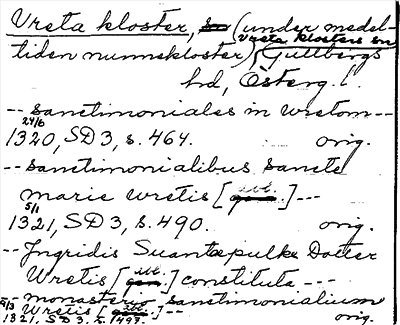 Vreta kloster, (under medel-
Vreta klosters sn
tiden nunnekloster), Gullbergs
hd, Österg. l.
-- sanctimoniales in Wretom --
24/6
1320, SD 3, s. 464. orig.
-- sanctimonialibus sancte
marie Wretis [abl.] --
5/1
1321, SD 3, s. 490. orig.
-- Ingridis Suantæpulks Dotter
Wretis [abl.] constituta --
-- monasterio sanctimonialium
Wretis [abl.] --
5/3
1321, SD 3, s. 497. orig.